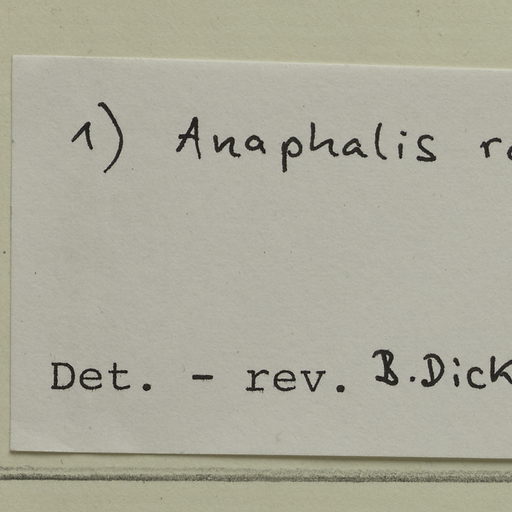 1) Anaphalis
Det. - rev. B.Dick